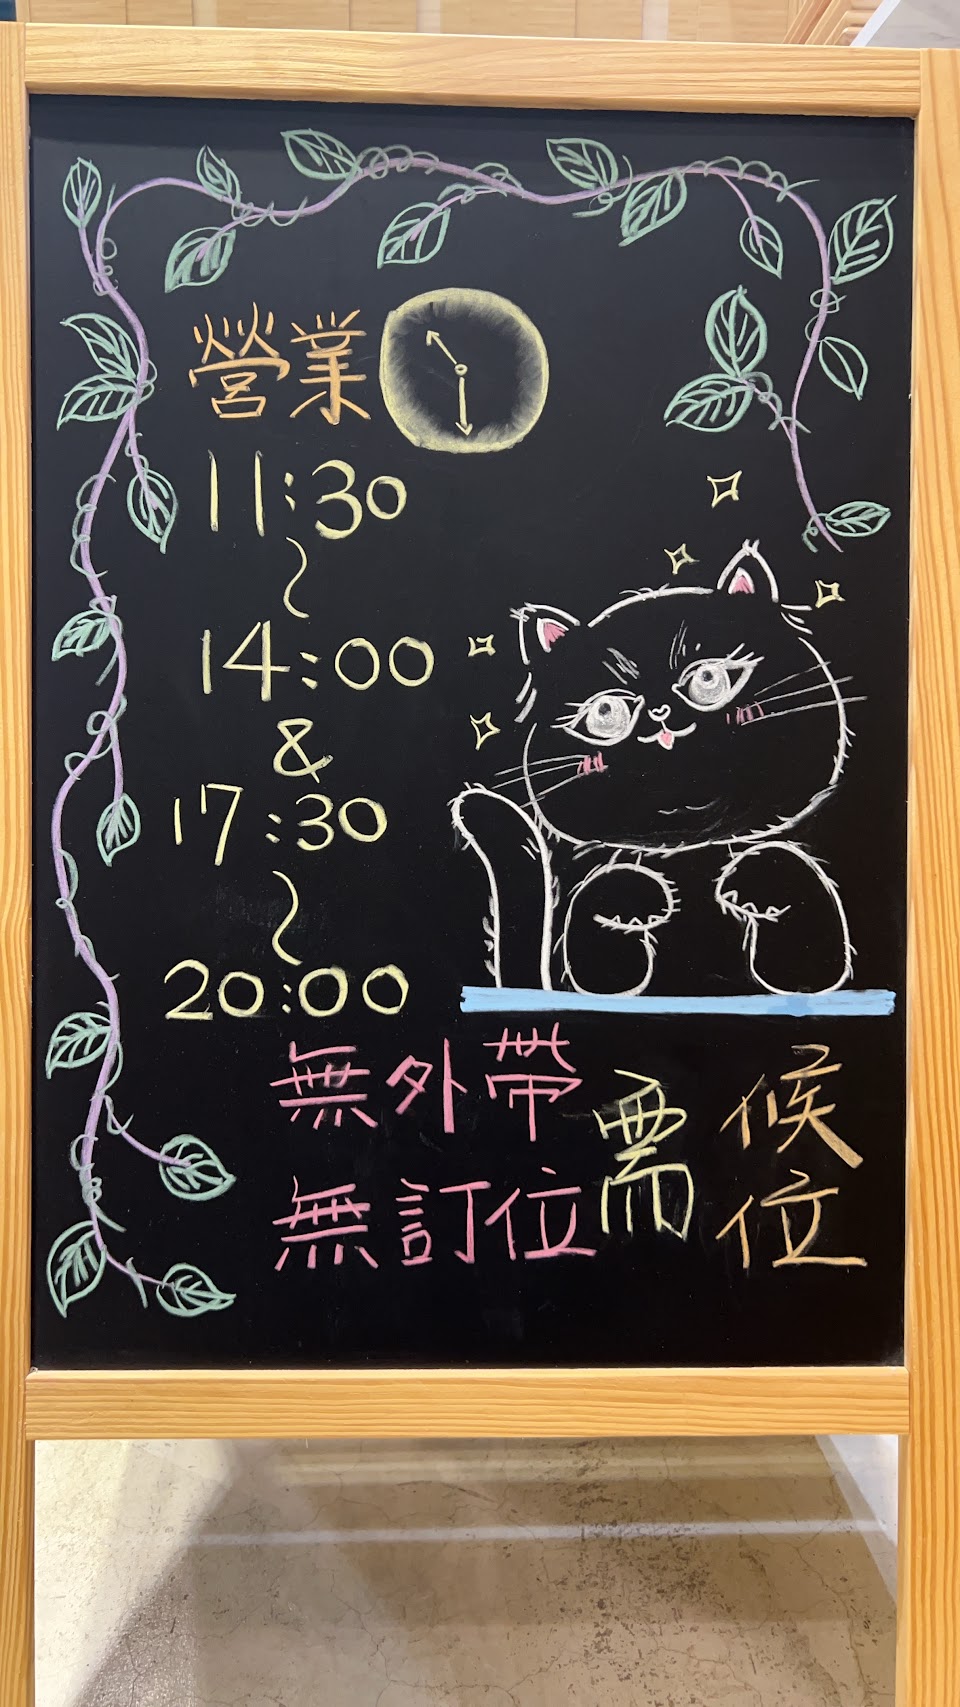 營業
11:30
~
14:00
&
17:30
~
20:00
無外帶
無訂位
需
候位